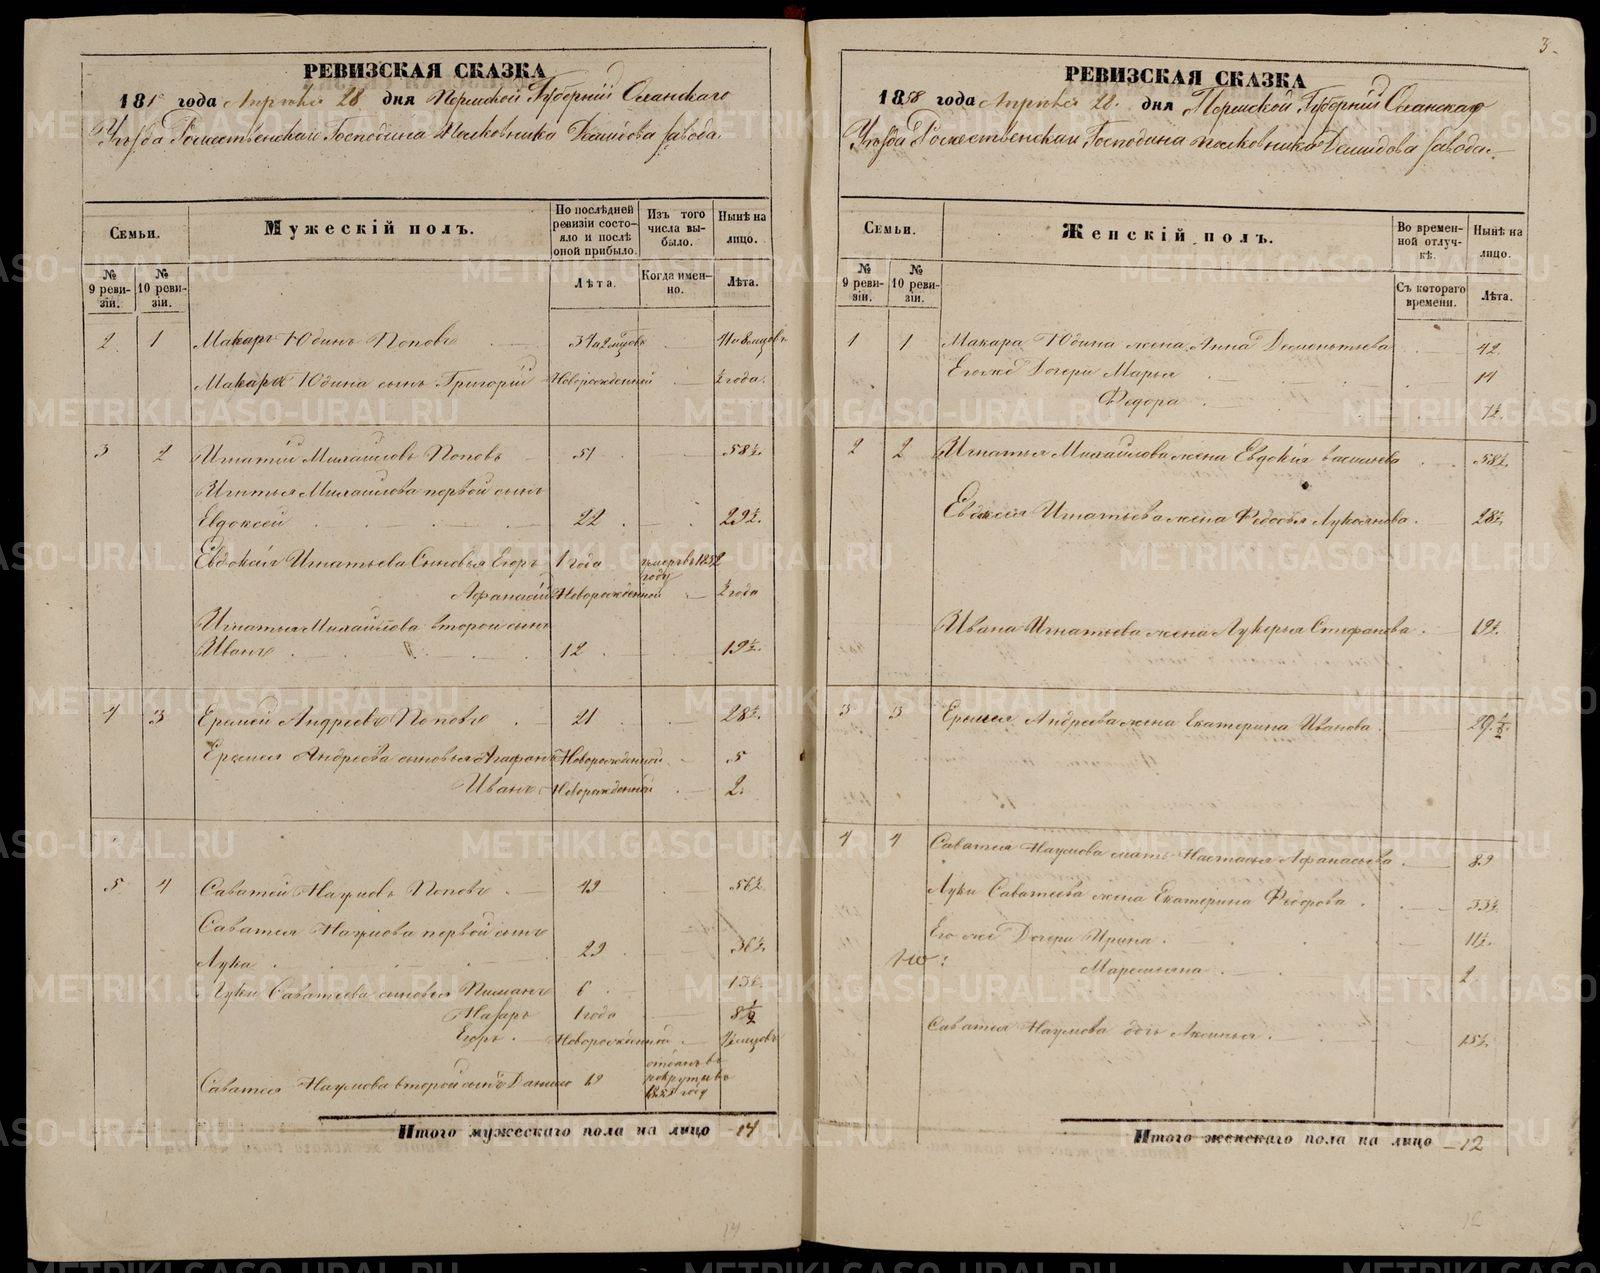 РЕВИЗСКАЯ СКАЗКА
185 года Апрѣля 28 дня Пермской Губерніи Оханскаго
Уѣзда Рождественскаго Господина Полковника Демидова завода.
Семьи.
Мужескій полъ.
По послѣдней ревизіи состояло и послѣ оной прибыло.
Изъ того числа выбыло.
Нынѣ на лицо.
№ 9 ревизіи.
№ 10 ревизіи.
Лѣта.
Когда именно.
Лѣта.
2 1 Макаръ Юдинъ Поповъ
Макара Юдина сынъ Григорій Новорожденной ½ года.
3 2 Игнатій Михайловъ Поповъ 51 58½.
Игнатья Михайлова первой сынъ
Евдокей 22 29½.
Евдокѣя Игнатьева Сыновья Егоръ 1 года умеръ въ 1852 году
Афанасій Новорожденной ½ года
Игнатья Михайлова второй сынъ
Иванъ 12 19½.
4 3 Еремей Андреевъ Поповъ 21 28½.
Еремея Андреева сыновья Агафонъ Новорожденной 5
Иванъ Новорожденной 2.
5 4 Саватей Наумовъ Поповъ 49 56½
Саватея Наумова первой сынъ
Лука 29 36½.
Луки Саватеева сыновья Пиманъ 6 13½
Назаръ 1 года 8½
Егоръ Новорожденной
Саватея Наумова второй сынъ Данило 19 отданъ въ рекруты въ 1855 году
Итого мужескаго пола на лицо 14
14
3.
РЕВИЗСКАЯ СКАЗКА
1858 года Апрѣля 28 дня Пермской Губерніи Оханскаго
Уѣзда Рождественскаго Господина полковника Демидова завода.
Семьи.
Женскій полъ.
Во временной отлучкѣ.
Нынѣ на лицо.
№ 9 ревизіи.
№ 10 ревизіи.
Съ котораго времени.
Лѣта.
1 1 Макара Юдина жена Анна Дементьева 42.
Егоже Дочери Марья 14
Федора 7½.
2 2 Игнатья Михайлова жена Евдокія Васильева 58½.
Евдокѣя Игнатьева жена Федосья Лукоянова. 28½.
Ивана Игнатьева жена Лукерья Стефанова. 19½.
3 3 Еремея Андреева жена Екатерина Иванова. 29½.
4 4 Саватея Наумова мать Настасья Афанасьева 89
Луки Саватеева жена Екатерина Федорова. 33½
Его же Дочери Ирина. 11½.
Маремьяна 2
Саватея Наумова дочь Аксинья. 15½.
Итого женскаго пола на лицо 12
12
METRIKI.GASO-URAL.RU